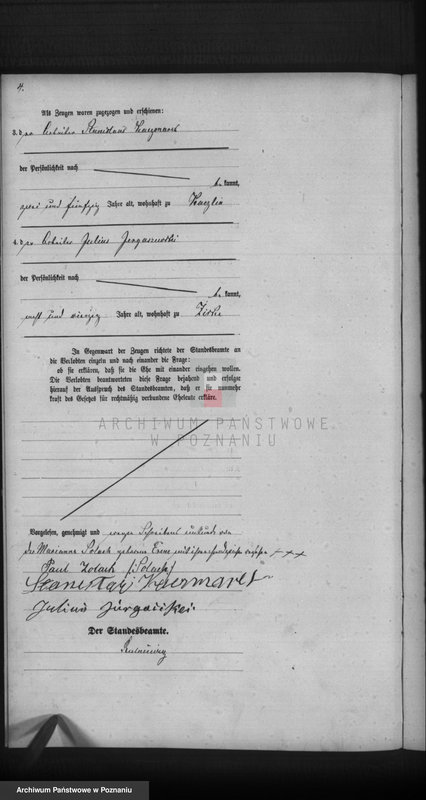 4.
Als Zeugen waren zugezogen und erschienen:
3. der Arbeiter Stanislaus
der Persönlichkeit nach
be kannt,
zwei und fünfzig Jahre alt, wohnhaft zu
4. der Arbeiter Julius
der Persönlichkeit nach
be kannt,
und vierzig Jahre alt, wohnhaft zu Zirke
In Gegenwart der Zeugen richtete der Standesbeamte an
die Verlobten einzeln und nach einander die Frage:
ob sie erklären, daß sie die Ehe mit einander eingehen wollen.
Die Verlobten beantworteten diese Frage bejahend und erfolgte
hierauf der Ausspruch des Standesbeamten, daß er sie nunmehr
kraft des Gesetzes für rechtmäßig verbundene Eheleute erkläre.
ARCHIWUM PAŃSTWOWE
W POZNANIU
Vorgelesen, genehmigt und wegen Schreibens unkunde von
der Marianna Polach geborene +++
Paul Polach (Polach)
Julius
Der Standesbeamte.
Archiwum Państwowe w Poznaniu